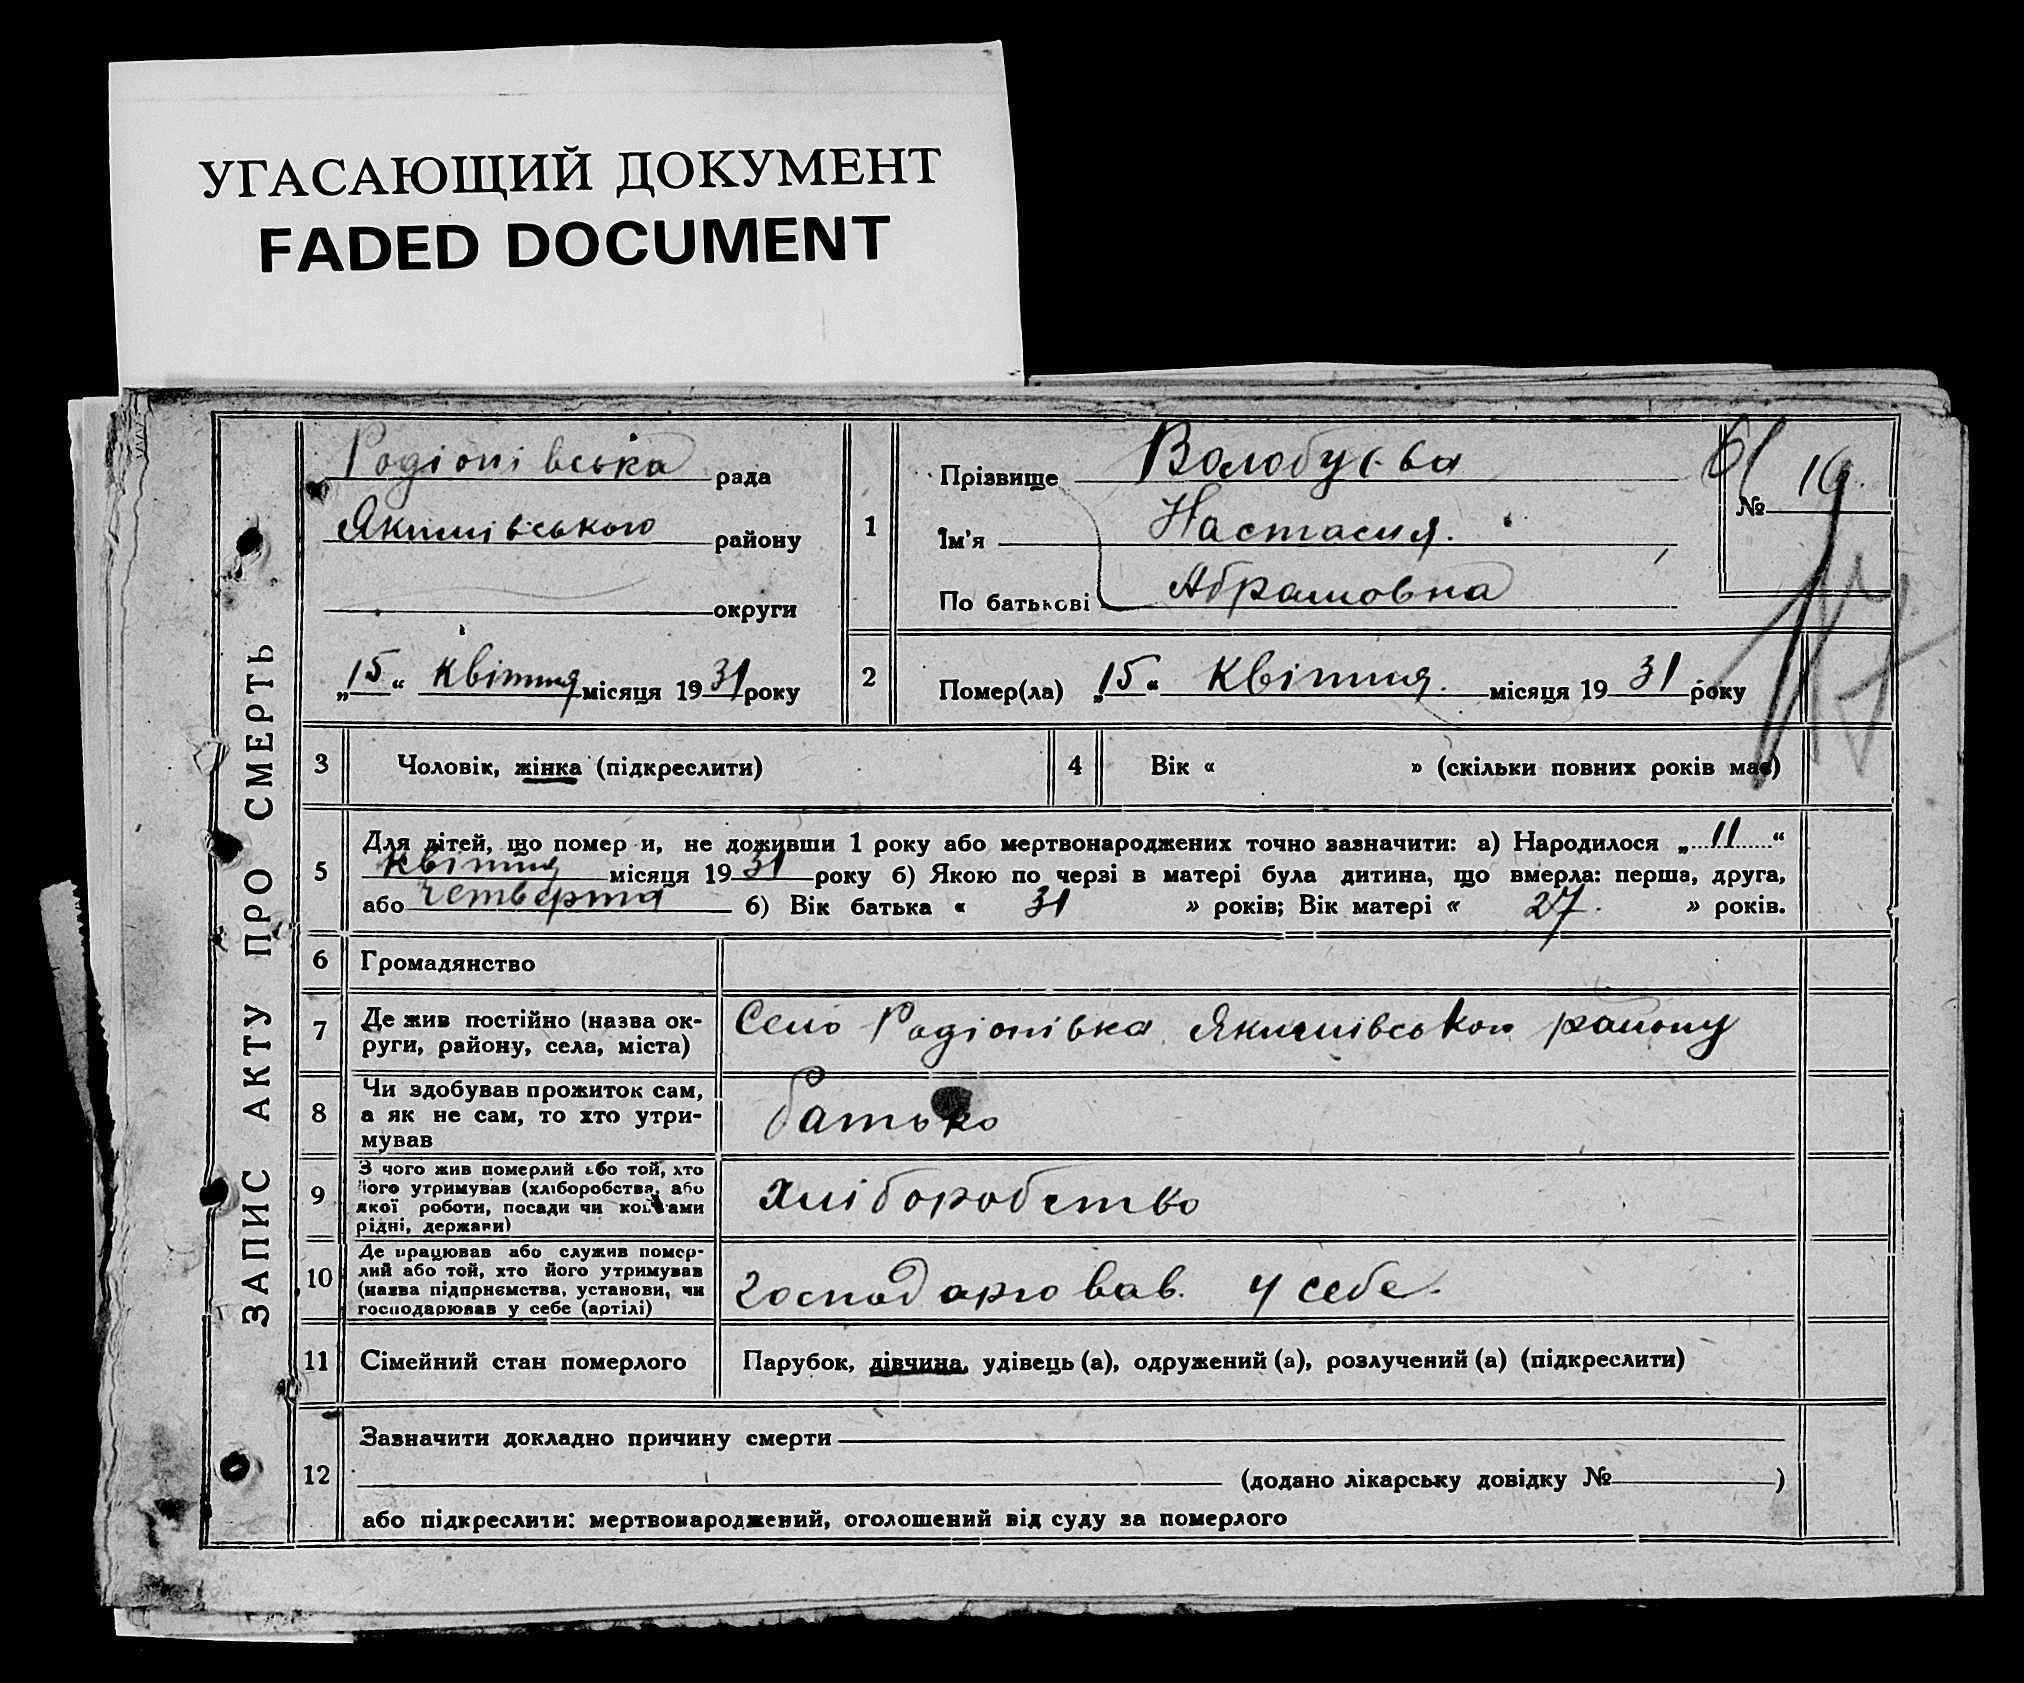 УГАСАЮЩИЙ ДОКУМЕНТ
FADED DOCUMENT
ЗАПИС АКТУ ПРО СМЕРТЬ
Родіонівська рада
Якимівського району
округи
„15“ квітня місяця 1931 року
1
Прізвище Волобуєва
Ім'я Настасия.
По батькові Абрамовна
№ 19
2
Помер(ла) „15“ Квітня. місяця 1931 року
3 Чоловік, жінка (підкреслити)
4 Вік « » (скільки повних років має)
5
Для дітей, що помер и, не доживши 1 року або мертвонароджених точно зазначити: а) Народилося „11“
квітня місяця 1931 року б) Якою по черзі в матері була дитина, що вмерла: перша, друга,
або четверта б) Вік батька « 31 » років; Вік матері « 27. » років.
6 Громадянство
7
Де жив постійно (назва ок-
руги, району, села, міста)
Село Родіонівка Якимівського району
8
Чи здобував прожиток сам,
а як не сам, то хто утри-
мував
батько
9
З чого жив померлий або той, хто
його утримував (хліборобства, або
якої роботи, посади чи коштами
рідні, держави)
хліборобство
10
Де працював або служив помер-
лий або той, хто його утримував
(назва підприємства, установи, чи
господарював у себе (артілі)
господарював. у себе.
11 Сімейний стан померлого
Парубок, дівчина, удівець (а), одружений (а), розлучений (а) (підкреслити)
12
Зазначити докладно причину смерти
(додано лікарську довідку № )
або підкреслити: мертвонароджений, оголошений від суду за померлого